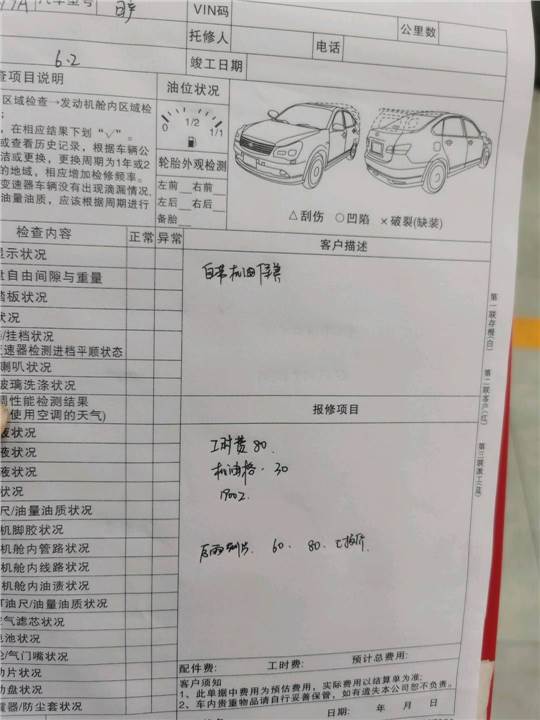 汽车型号
VIN码
公里数
托修人
电话
6.2
竣工日期
查项目说明
油位状况
区域检查→发动机舱内区域检
在相应结果下划“√”。
或查看历史记录，根据车辆公
洁或更换，更换周期为1年或2
的地域，相应增加检修频率。
变速器车辆没有出现滴漏情况，
油量油质，应该根据周期进行
0 1/2 1/1
轮胎外观检测
左前__右前__
左后__右后__
备胎__
△刮伤 ○凹陷 ×破裂(缺装)
检查内容 正常 异常
客户描述
显示状况
盘自由间隙与重量
踏板状况
状况
/挂档状况
变速器检测进档平顺状态
喇叭状况
玻璃洗涤状况
调性能检测结果
使用空调的天气)
液状况
液状况
液状况
状况
尺/油量油质状况
机脚胶状况
机舱内管路状况
机舱内线路状况
机舱内油渍状况
油尺/油量油质状况
空气滤芯状况
电池状况
/气门嘴状况
动片状况
动盘状况
震器/防尘套状况
自带机油保养
报修项目
工时费 80
机油格. 30
后雨刮片. 60. 80.
第一联存根(白)
第二联客户(红)
第三联派工(蓝)
配件费: 工时费: 预计总费用:
客户须知
1、此单据中费用为预估费用，实际费用以结算单为准;
2、车内贵重物品请自行妥善保管，如有遗失本公司恕不负责。
年 月 日